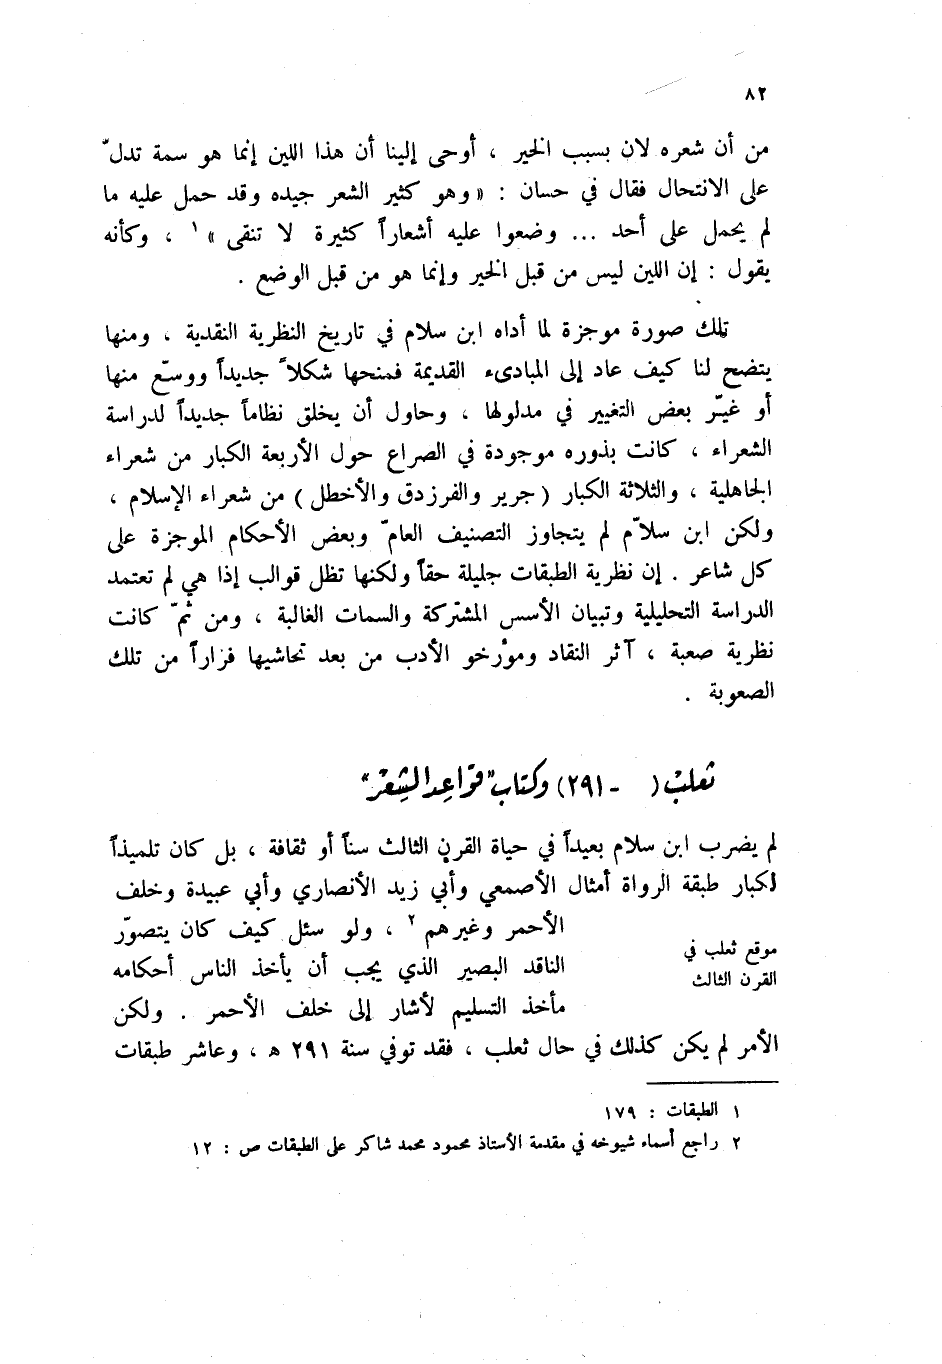 ٨٢
من أن شعره لان بسبب الخير ، أوحى إلينا أن هذا اللين إنما هو سمة تدلّ
على الانتحال فقال في حسان : « وهو كثير الشعر جيده وقد حمل عليه ما
لم يحمل على أحد ... وضعوا عليه أشعاراً كثيرة لا تنقى » ١ ، وكأنه
يقول : إن اللين ليس من قبل الخير وإنما هو من قبل الوضع .
تلك صورة موجزة لما أداه ابن سلام في تاريخ النظرية النقدية ، ومنها
يتضح لنا كيف عاد إلى المبادىء القديمة فمنحها شكلاً جديداً ووسّع منها
أو غيّر بعض التغيير في مدلولها ، وحاول أن يخلق نظاماً جديداً لدراسة
الشعراء ، كانت بذوره موجودة في الصراع حول الأربعة الكبار من شعراء
الجاهلية ، والثلاثة الكبار ( جرير والفرزدق والأخطل ) من شعراء الإسلام ،
ولكن ابن سلاّم لم يتجاوز التصنيف العامّ وبعض الأحكام الموجزة على
كل شاعر . إن نظرية الطبقات جليلة حقاً ولكنها تظل قوالب إذا هي لم تعتمد
الدراسة التحليلية وتبيان الأسس المشتركة والسمات الغالبة ، ومن ثمّ كانت
نظرية صعبة ، آثر النقاد ومؤرخو الأدب من بعد تحاشيها فراراً من تلك
الصعوبة .
ثعلبْ ( - ٢٩١) وكتاب "قوَاعِد الشِعْر"
لم يضرب ابن سلام بعيداً في حياة القرن الثالث سناً أو ثقافة ، بل كان تلميذاً
لكبار طبقة الرواة أمثال الأصمعي وأبي زيد الأنصاري وأبي عبيدة وخلف
الأحمر وغيرهم ٢ ، ولو سئل كيف كان يتصوّر
الناقد البصير الذي يجب أن يأخذ الناس أحكامه
مأخذ التسليم لأشار إلى خلف الأحمر . ولكن
موقع ثعلب في
القرن الثالث
الأمر لم يكن كذلك في حال ثعلب ، فقد توفي سنة ٢٩١ ه ، وعاشر طبقات
١ الطبقات : ١٧٩
٢ راجع أسماء شيوخه في مقدمة الأستاذ محمود محمد شاكر على الطبقات ص : ١٢